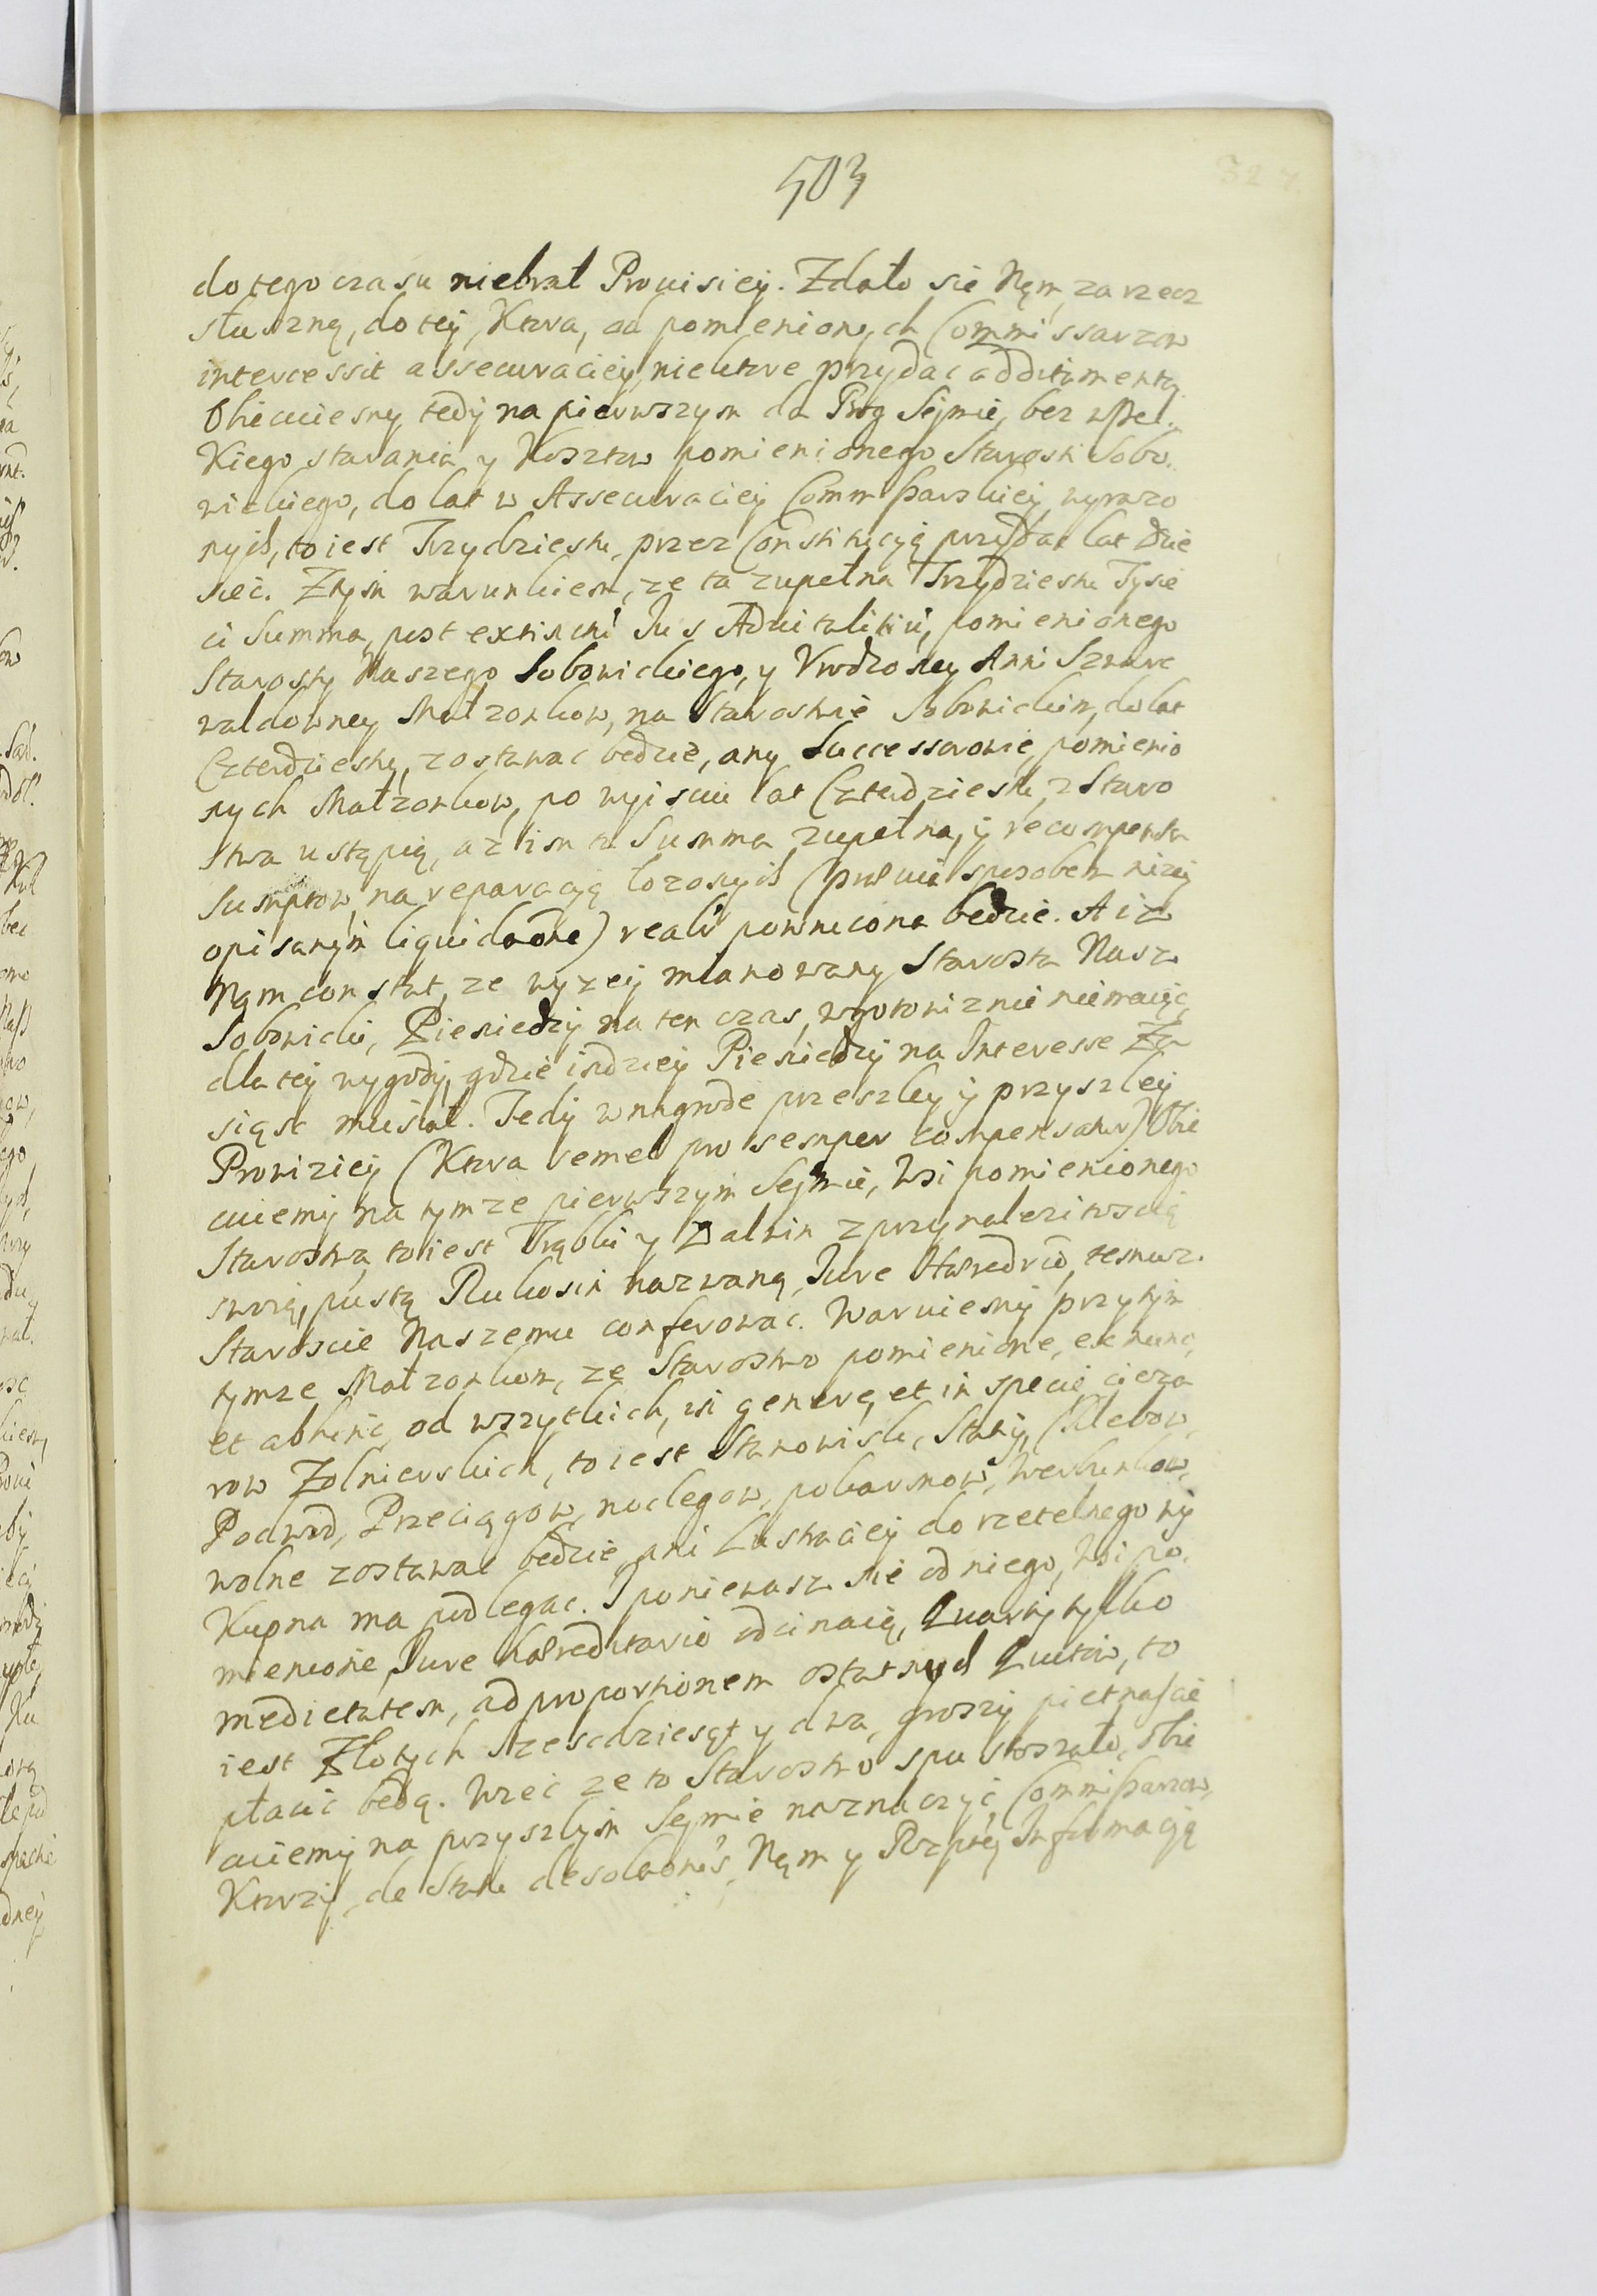 503
327
do tego czasu niebrał Prouisiey. Zdało sie Nąm za rzecz
słuszną, do tey, Ktora, od pomienionych Commissarzow
intercessit assecuraciey, niektore przydac additamenta.
Obiecuiemy tedy na pierwszym da Bóg Seymie, bez wszel.
Kiego starania y Kosztow pomienionego Starosti Sobo.
wickiego, do lat w Assecuraciey Commißarskiey wyrazo
nych, to iest Trzydziestu, przez Constitucyą przydac lat dzie
sięć. Ztym warunkiem, ze ta zupełna Trzydziestu Tysie
ci Summa, post extincti Jus Aduitalitiu, pomienionego
Starosty Naszego Sobowickiego, y Vrodzoney Anni Szwarc
waldowney Małzonkow, na Starostwie Sobowickim, do lat
Czterdziestu, zostawac bedzie, any Successorowie, pomienio
nych Małzonkow, po wyisciu lat Czterdziestu, z Staro
stwa ustąpią, az im ta Summa zupełna, y recompensa
Sumptow na reparacyą łozonych (prawie sposobem nizey
opisanym liquidaone) realr powrucona bedzie. A iz
Nąm constat, ze wyzey mianowany Starosta Nasz
Sobowicki, Pieniedzy na ten czas, wgotowiznie niemaiąc,
dla tey wygody, gdzie indziey Pieniedzy na Interesse Za
siąść musiał. Tedy wnagrode przeszley y przyszley
Prowiziey (Ktora semel pro semper compensatur) Obie
cuiemy na tymze pierwszym Seymie, Wsi pomienionego
Starostwa, to iest Trąbki y Zalwin z przynalezitoscią
swoią, pustą Rukosin nazwaną, Jure Hæredrio, temusz
Staroscie Naszemu conferowac. Waruiemy przytym
tymze Małzonkom, ze Starostwo pomienione, ex nunc,
et abhinc, od wszytkich, in genere, et in specie cięza
row Zolnierskich, to iest Stanowisk, Stacy, Chlebow,
Podwod, Przeciągow, noclegow, pokarmow, Werbunkow,
wolne zostawac bedzie, ani Lustraciey do rzetelnego wy
Kupna ma podlegac. I poniewasz sie od niego, Wsi po.
mienione, Jure hæreditario odcinaią, Quarty tylko
medietatem, ad proportionem ostatnych Quitow, to
iest Złotych szescdziesąt y dwa, groszy pietnascie
płacic bedą. Wzeć ze to Starostwo spustoszało, Obie
cuiemy na przyszlym Seymie naznaczyć, Commißarzow,
Ktorzy, de Statu desolaonis, Nąm y Rzptey Informacyą